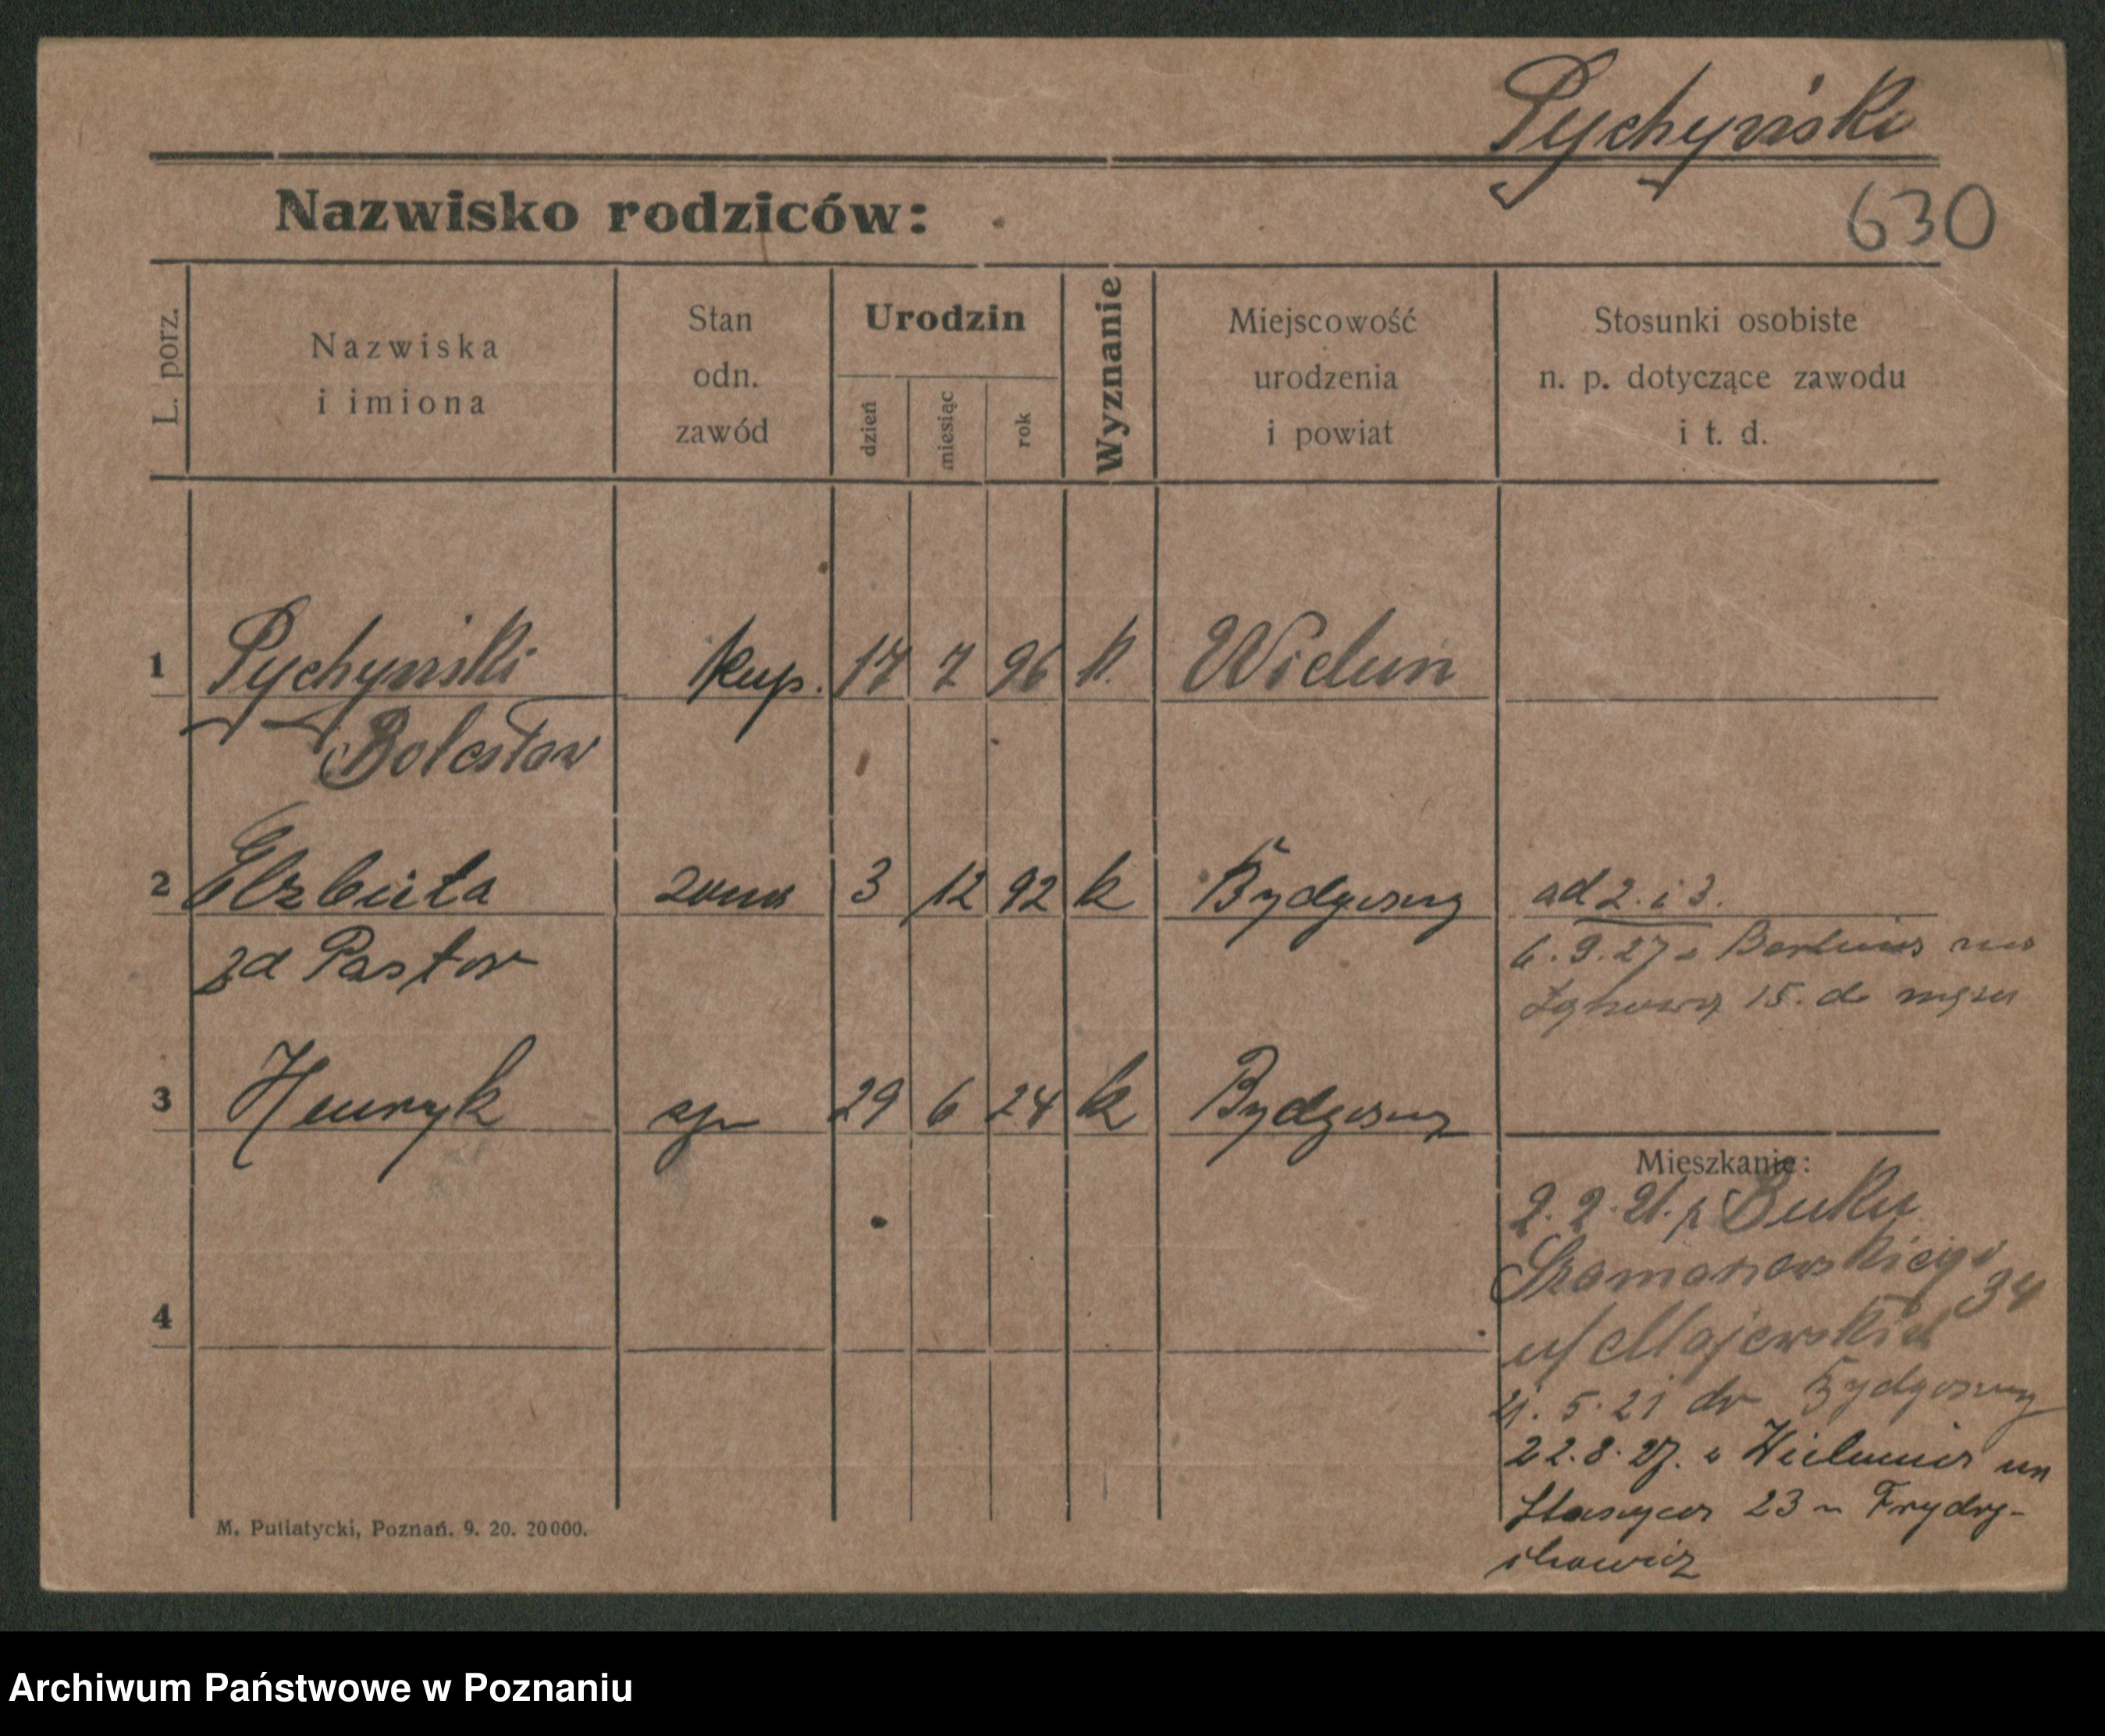 Pychyński
630
Nazwisko rodziców:
L. porz.
Nazwiska
i imiona
Stan
odn.
zawód
Urodzin
dzień
miesiąc
rok
Wyznanie
Miejscowość
urodzenia
i powiat
Stosunki osobiste
n. p. dotyczące zawodu
i t. d.
1 Pychyński kup. 17 7 96 k. Wielun
Bolesław
2 Elzbieta zona 3 12 92 k Bydgoszcz
zd Pastor
ad 2. i 3.
6.9.27 z Berlina na
15. do męza
3 Henryk syn 29 6 24 k Bydgoszcz
Mieszkanie:
2.2.21. z Buku
Szamarzewskiego 34
u/ Majewskich
21.5.21 do Bydgoszczy
22.8.27. z Wielunia na
Staszyca 23 u Frydry-
chowicz
4
M. Putiatycki, Poznań. 9. 20. 20000.
Archiwum Państwowe w Poznaniu